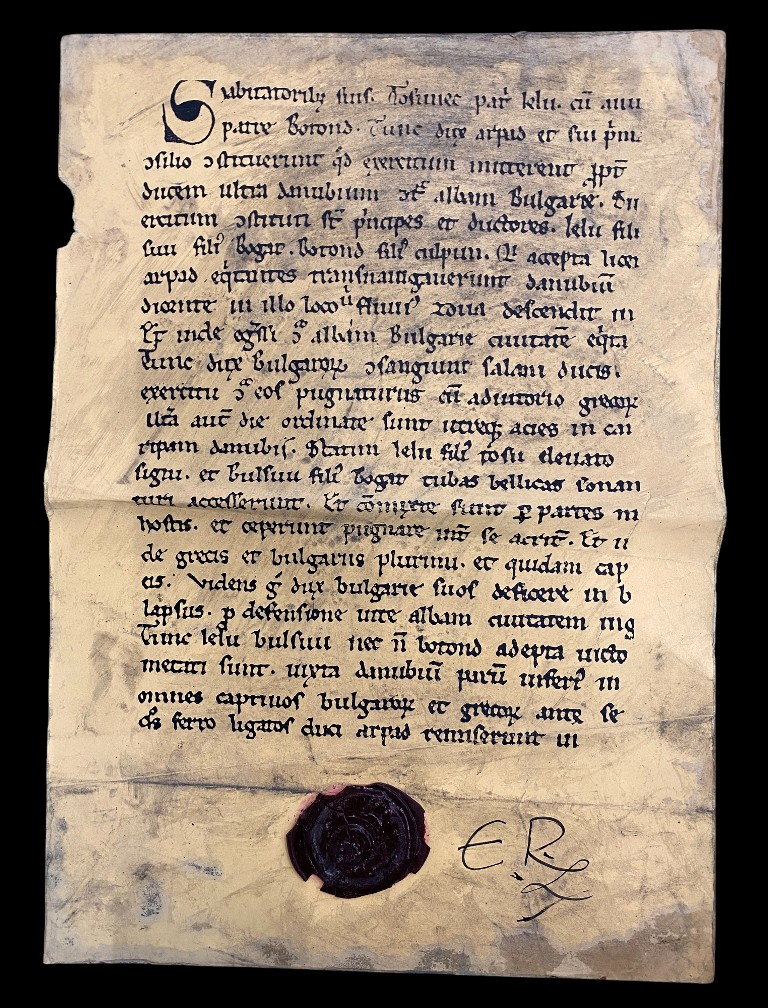 Suabitatoribus suis. Tosunec pat̃ lelu. cũ auu
patre Botond. Tunc dux arpad et sui p̃m
ↄsilio ↄstituerunt q̃d exercitum mitterent ꝓpt̃
ducem ultra danubium ↄt̃ albam Bulgarie. Du
ercitum ↄstituti st̃ p̃ncipes et ductores. lelu fili
suu fili᾽ Bogat. Botond fili᾽ culpun. Q̃ accepta licen
arpad eq̃tantes transnauigauerunt danubiũ
dicente in illo loco ᵘ fluui᾽ zoua descendit in
Et inde eg̃ssi ↄᵃ albam Bulgarie ciuitatẽ eq̃ta
Tunc dux Bulgaroꝝ ↄsanguint salani ducis.
exercitu ↄᵃ eos pugnaturus cũ adiutorio grecoꝝ
aut̃ die ordinate sunt utreqꝫ acies in cam
ripam danubij. Statim lelu fili᾽ tosu eleuato
signi. et Bulsuu fili᾽ bogat tubas bellicas sonan
turi accesserunt. Et cõmixte sunt ꝑ partes in
hostis. et ceperunt pugnare int̃ se acrit̃. Et
de grecis et bulgariis plurimi. et quidam cap
eis. Videns g̃ dux bulgarie suos deficere in b
lapsus. p defensione uite albam ciuitatem ing
Tunc lelu bulsuu nec ñ botond adepta uicto
metati sunt. iuxta danubiũ parũ inferi᾽ in
omnes captiuos bulgaroꝝ et grecoꝝ ante se
q̃s ferro ligatos duci arpad remiserunt in
E.R.